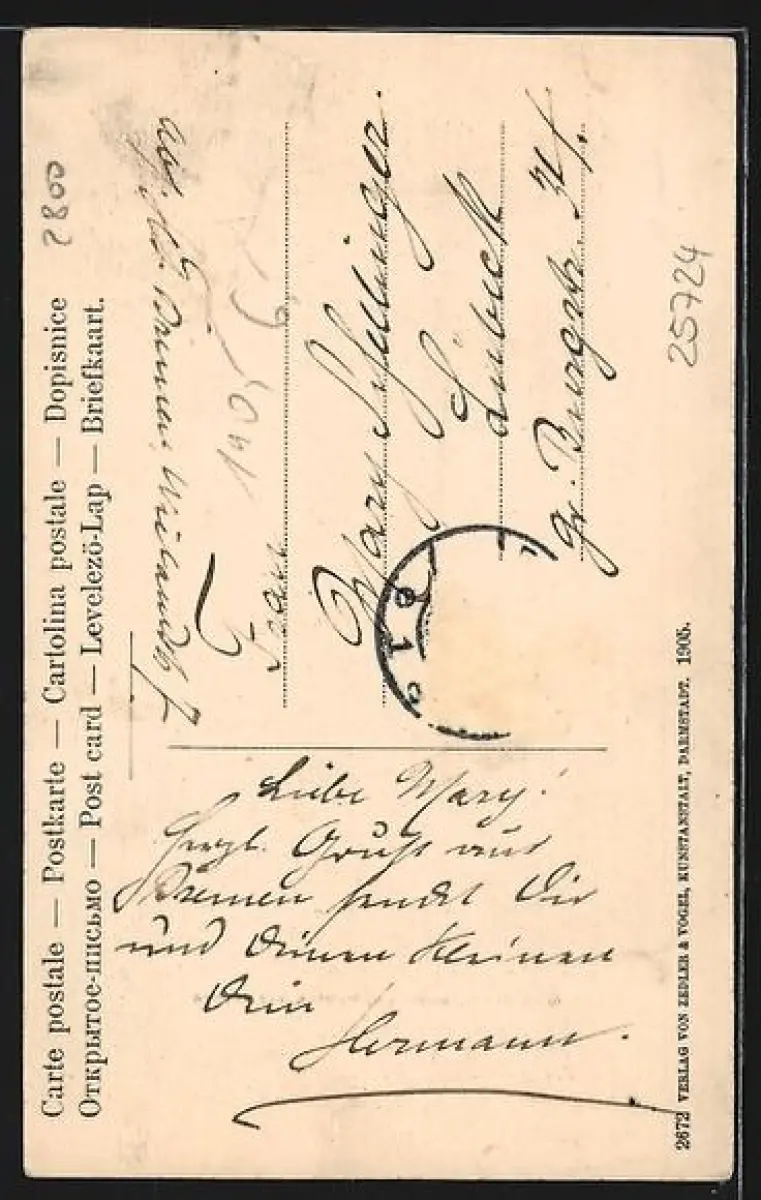 Carte postale — Postkarte — Cartolina postale — Dopisnice
Открытое-письмо — Post card — Levelező-Lap — Briefkaart.
2800
Bremen
1905
Frau
Mary
Lübeck
gr. Burgstr. 34
25724
Liebe Mary!
Herzl. Gruß aus
Bremen sendet Dir
und Deinen Kleinen
Dein
Hermann.
2672 VERLAG VON ZEDLER & VOGEL, KUNSTANSTALT, DARMSTADT. 1905.